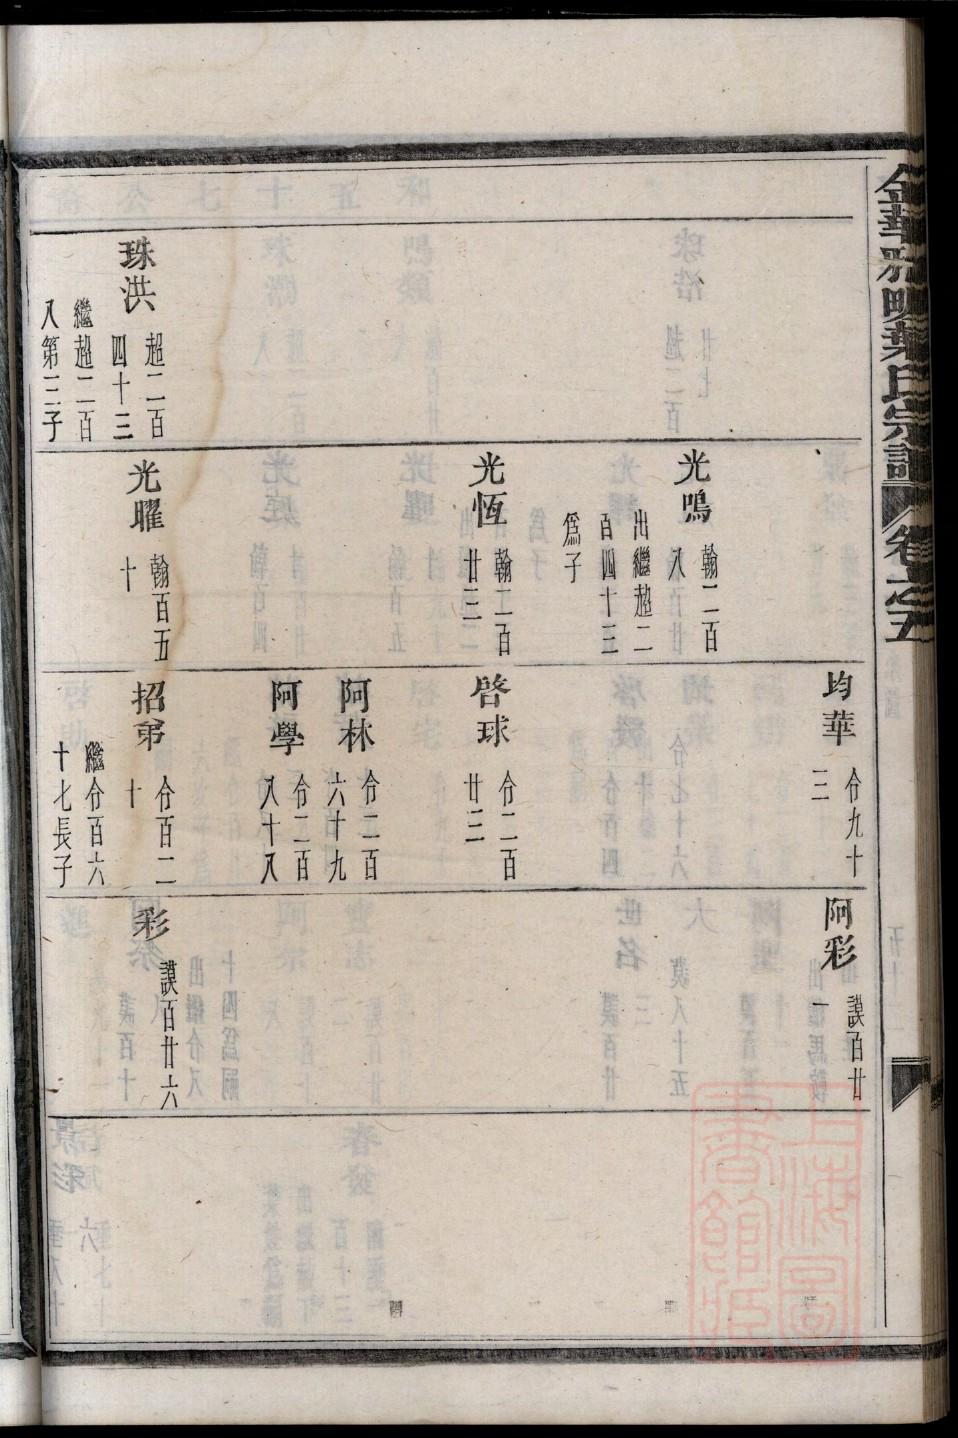 卷之五
珠洪
超二百
四十三
繼超二百
八第三子
光鳴
翰二百
八
出繼超二
百四十三
爲子
光恆
翰二百
廿三
光曜
翰百五
十
均華
㒰九十
三
啓球
㒰二百
廿三
阿林
㒰二百
六十九
阿學
㒰二百
八十八
招弟
㒰百二
十
繼㒰百六
十七長子
阿彩
謨百廿
一
彩
謨百廿六
上海圖
書館